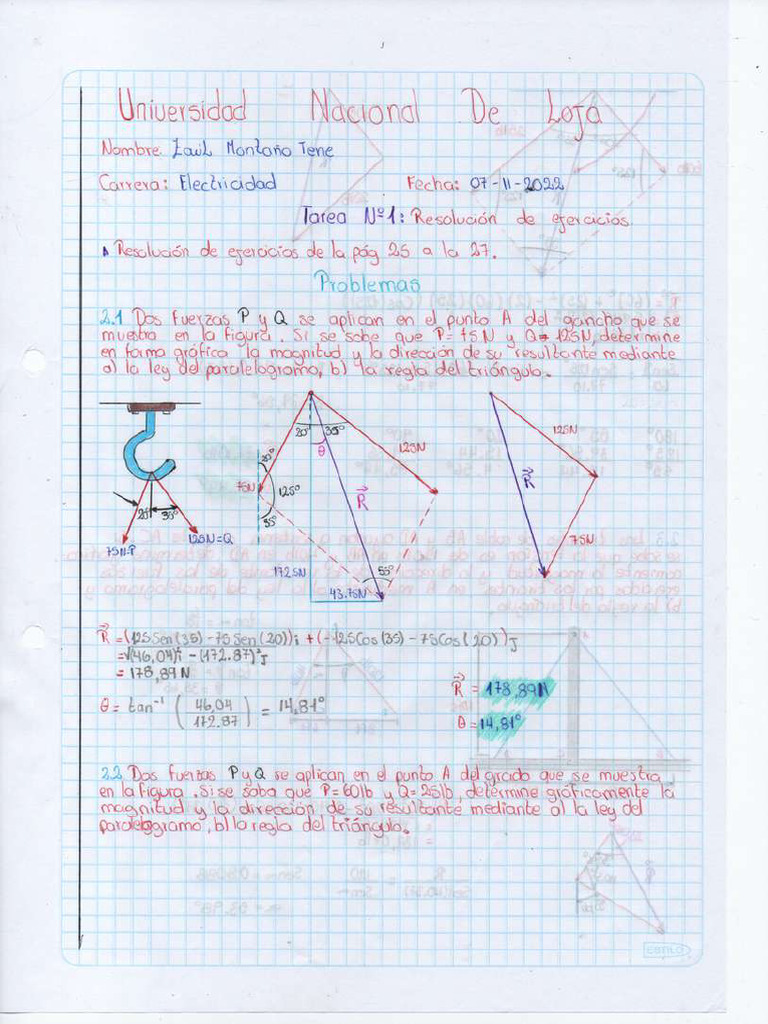 Universidad Nacional De Loja
Nombre: Zaul Montaño Tene
Carrera: Electricidad Fecha: 07-11-2022
Tarea Nº1: Resolución de ejercicios.
Resolución de ejercicios de la pág 25 a la 27.
Problemas
2.1 Dos fuerzas P y Q se aplican en el punto A del gancho que se
muestra en la figura. Si se sabe que P= 75N y Q= 125N, determine
en forma gráfica la magnitud y la dirección de su resultante mediante
a) la ley del paralelogramo, b) la regla del triángulo.
20° 35°
θ
125N
125N
30°
75N
125°
35°
R
R
20° 35°
125N=Q
75N=P
75N
172.5N
55°
43.75N
R = (125Sen(35) - 75Sen(20))i + (-125Cos(35) - 75Cos(20))J
= √(46,04)²i - (172.87)²J
= 178,89N
R = 178,89N
θ = tan⁻¹ (46,04 / 172.87) = 14,81°
θ = 14,81°
2.2 Dos fuerzas P y Q se aplican en el punto A del grado que se muestra
en la figura. Si se saba que P= 60lb y Q= 25lb, determine gráficamente la
magnitud y la dirección de su resultante mediante a) la ley del
paralelogramo, b) la regla del triángulo.
ESTILO